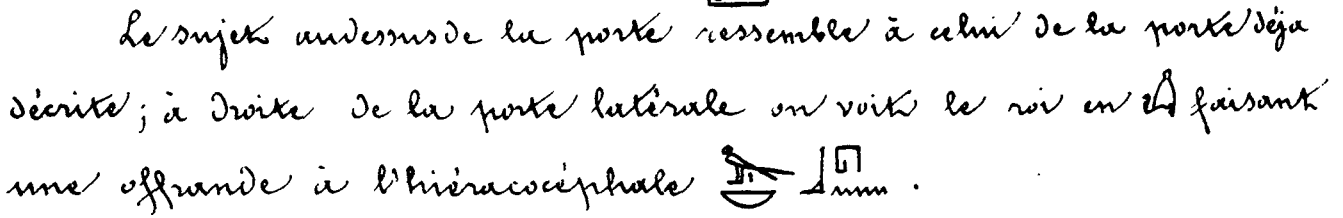 Le sujet audessus de la porte ressemble à celui de la porte déja
décrite; à droite de la porte latérale on voit le roi en faisant
une offrande à l'hiéracocéphale .